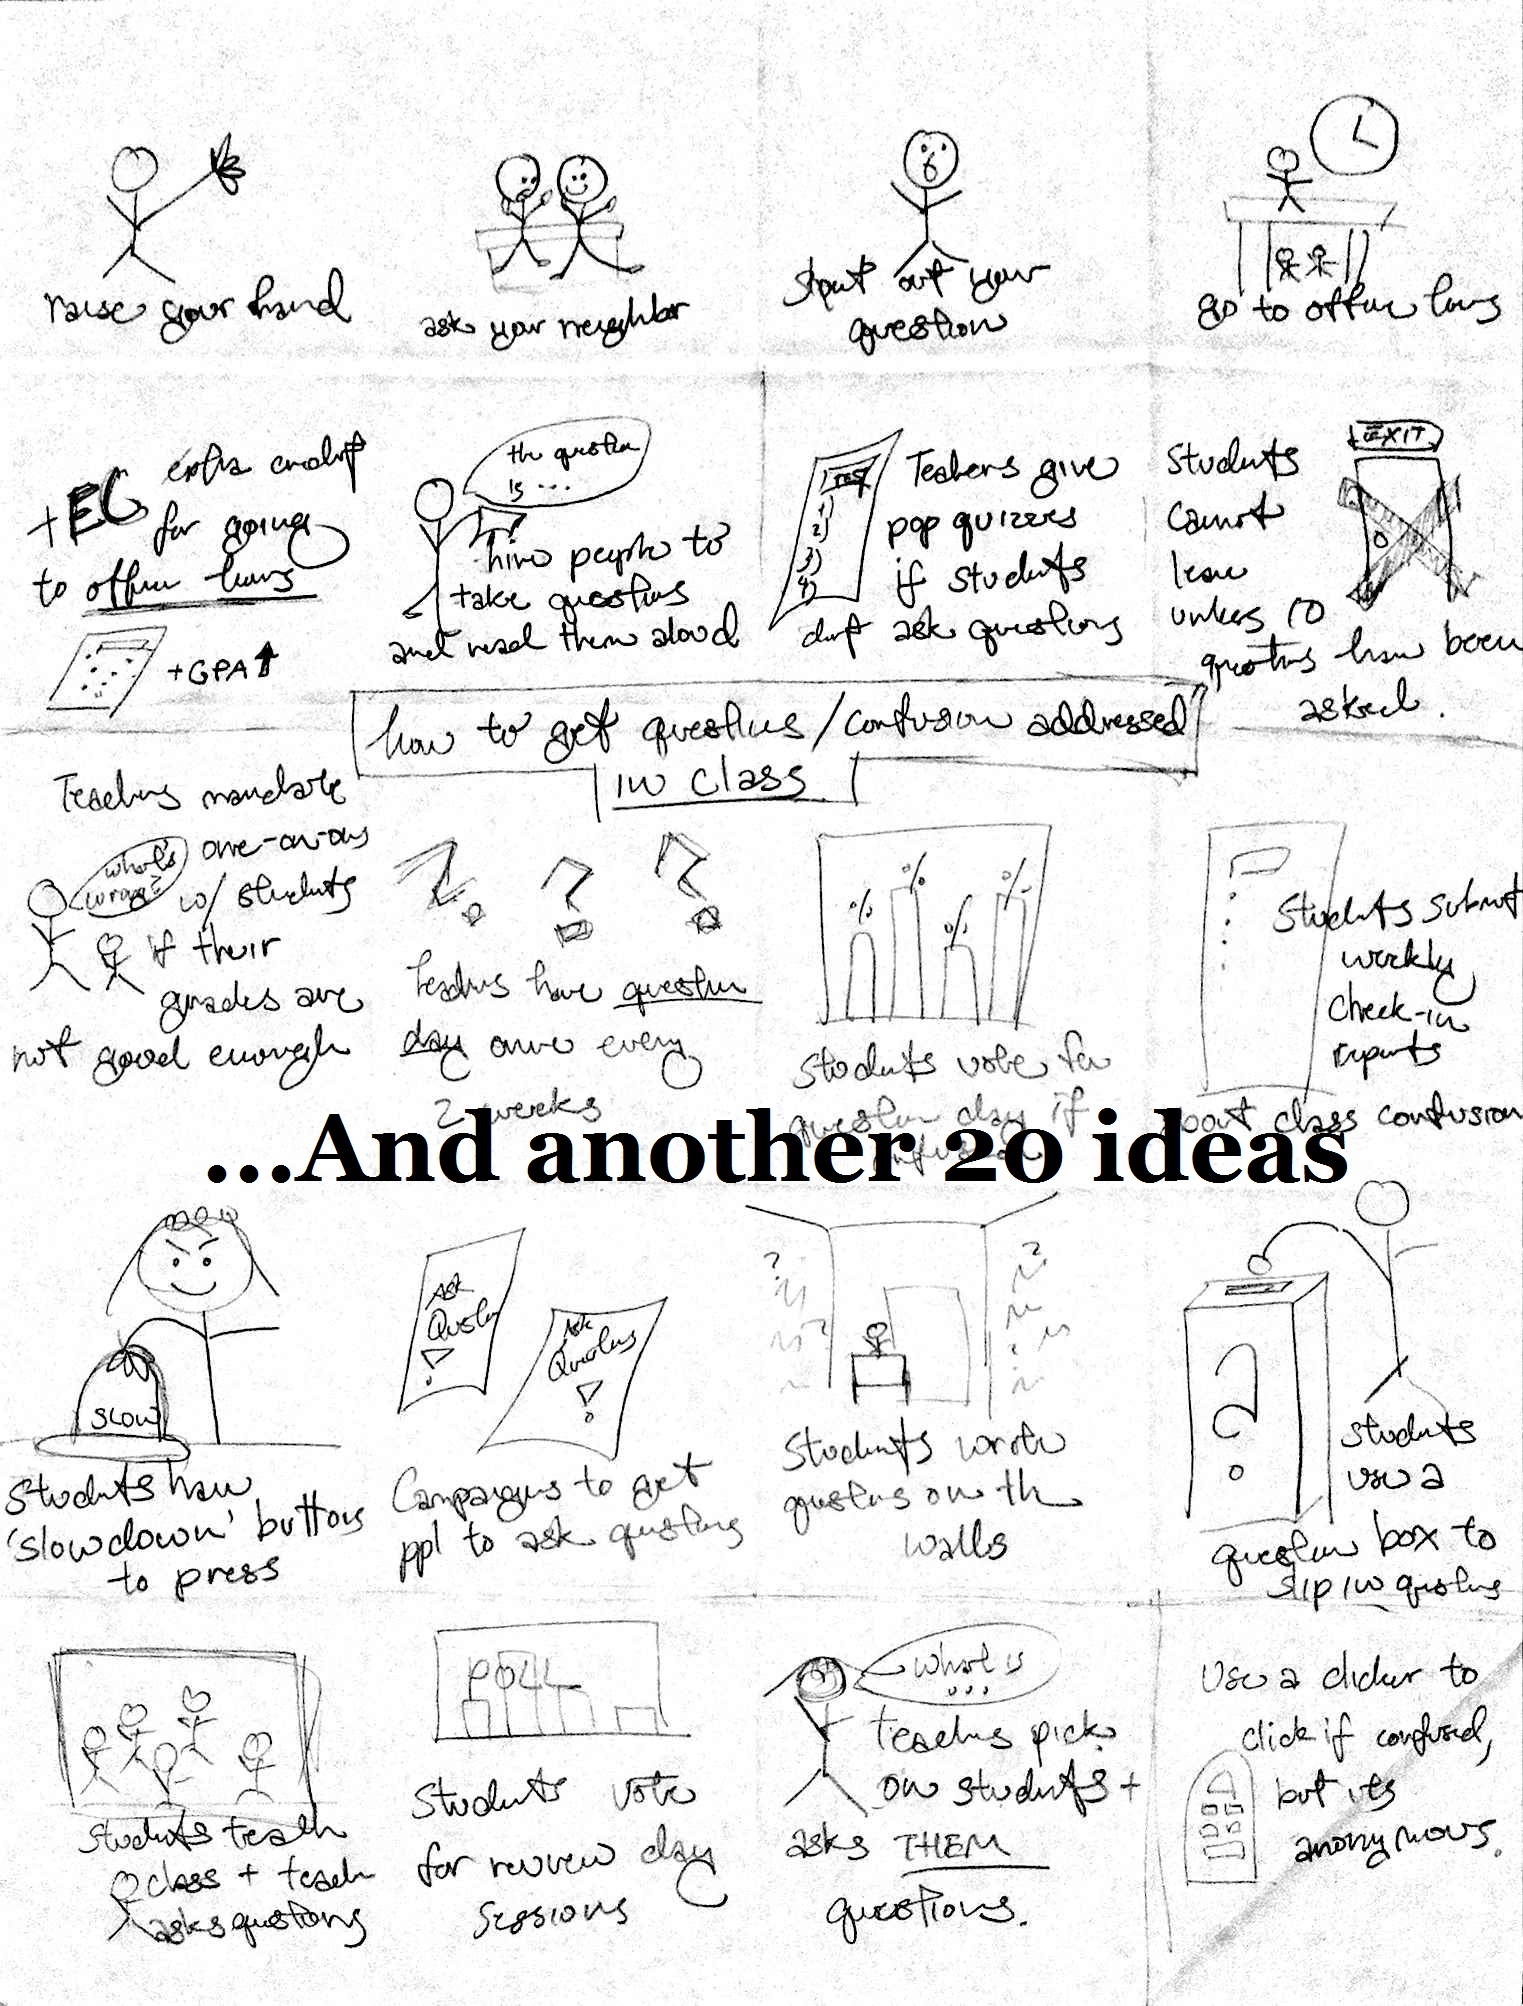 raise your hand
ask your neighbor
shout out your
question
go to office hours
+EC extra credit
for going
to office hours
+GPA
the question
is ...
hire people to
take questions
and read them aloud
TEST
1)
2)
3)
4)
Teachers give
pop quizzes
if students
don't ask questions
EXIT
Students
cannot
leave
unless 10
questions have been
asked.
how to get questions/confusion addressed
in class
Teachers mandate
one-on-ones
w/ students
if their
grades are
not good enough
what's
wrong?
? ? ?
Teachers have question
day once every
2 weeks
% % % %
Students vote for
question day if
Students submit
weekly
check-in
reports
about class confusion
...And another 20 ideas
SLOW
Students have
'slow down' buttons
to press
Ask
Questions
!
Ask
Questions
!
Campaigns to get
ppl to ask questions
Students write
questions on the
walls
?
Students
use a
question box to
slip in questions
Students teach
class + teach
asks questions
POLL
Students vote
for review day
sessions
What is
...
Teachers pick
on students +
asks THEM
questions.
Use a clicker to
click if confused,
but its
anonymous.